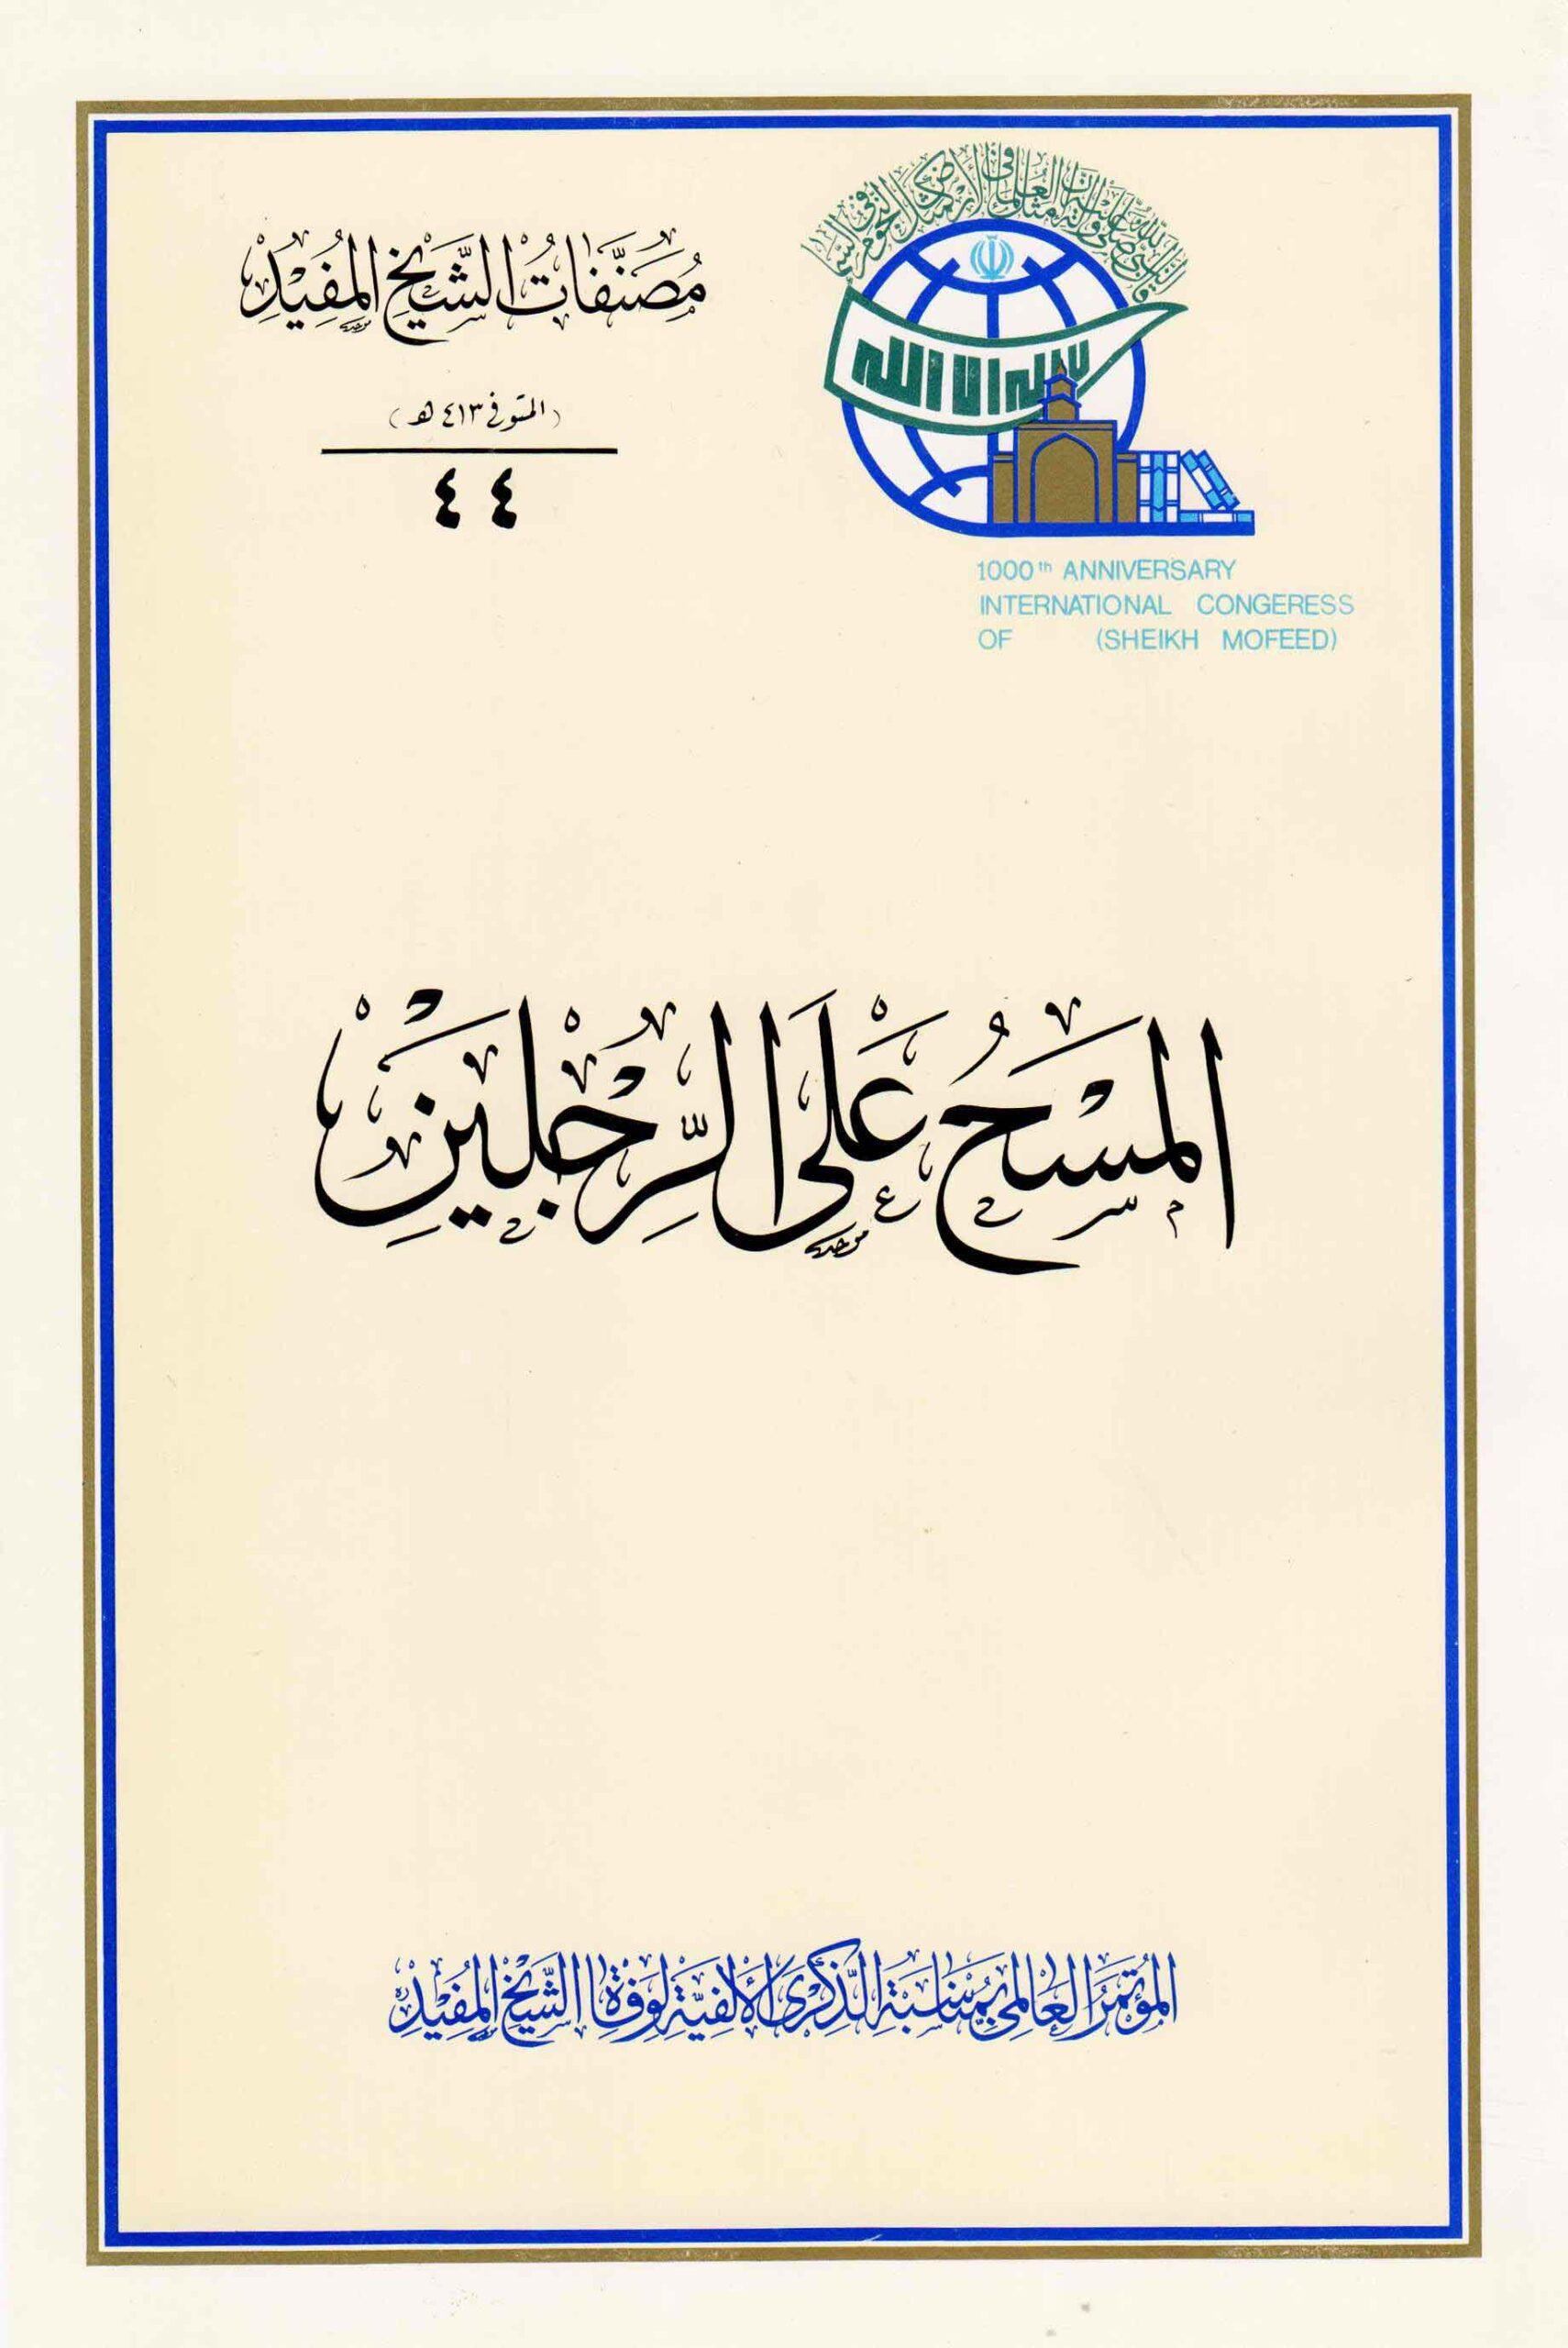 مُصَنَّفَاتُ الشَّيْخِ المُفِيْدِ
(المتوفى ٤١٣ هـ)
٤٤
لا إله إلا الله
1000th ANNIVERSARY
INTERNATIONAL CONGERESS
OF (SHEIKH MOFEED)
المَسْحُ عَلَى الرِّجْلَيْنِ
المُؤْتَمَرُ العَالَمِي بِمُنَاسَبَةِ الذِّكْرَى الأَلْفِيَّةِ لِوَفَاةِ الشَّيْخِ المُفِيْدِ